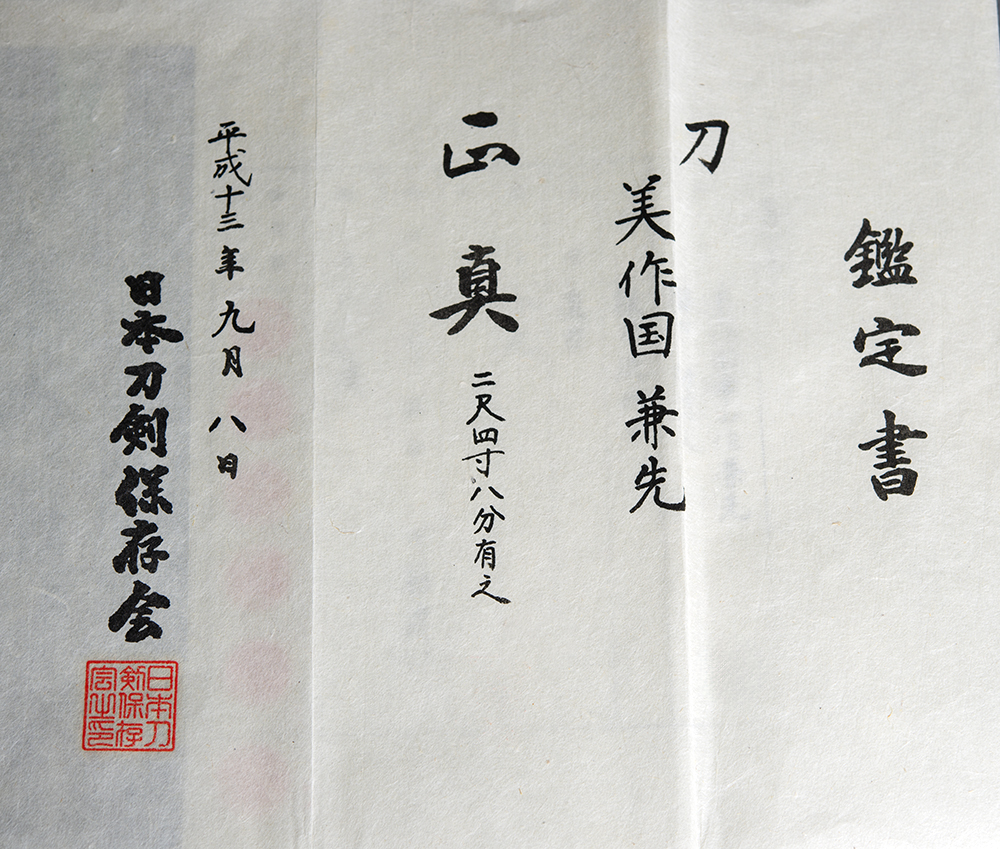 鑑定書
刀
美作国 兼先
正真 二尺四寸八分有之
平成十三年九月八日
日本刀剣保存会
日本刀
剣保存
会之印